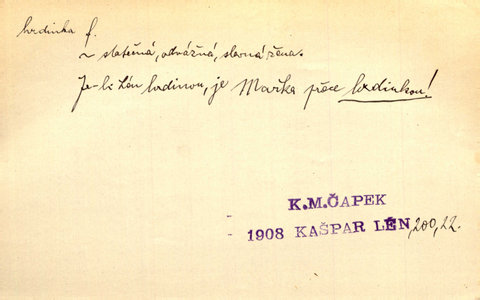 hrdinka f.
~ statečná, odvážná, slavná žena.
Je-li Lén hrdinou, je Mařka přece hrdinkou!
K.M.ČAPEK
1908 KAŠPAR LÉN, 200, 22.